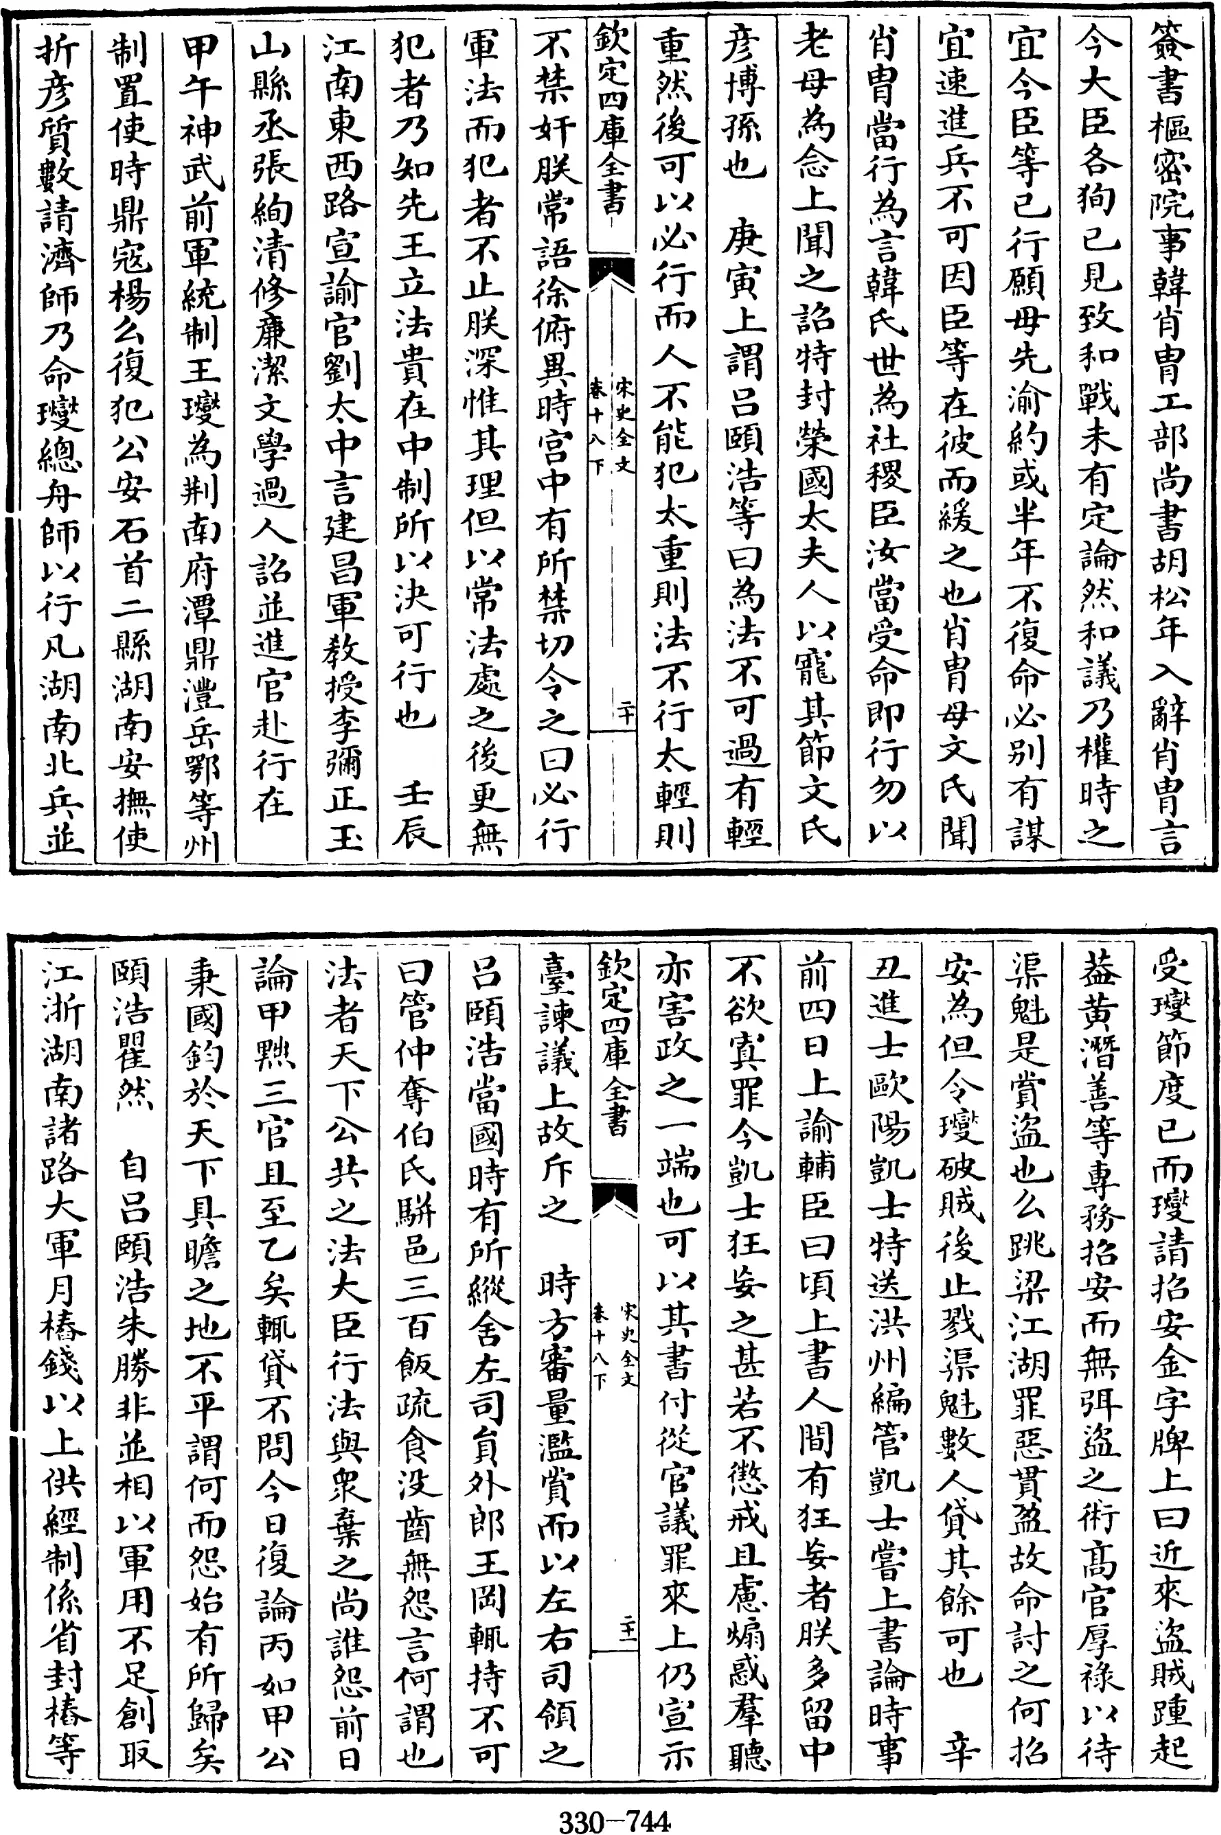 簽書樞密院事韓肖胄工部尚書胡松年入辭肖胄言
今大臣各狥已見致和戰未有定論然和議乃權時之
宜今臣等已行願毋先渝約或半年不復命必别有謀
宜速進兵不可因臣等在彼而緩之也肖胄母文氏聞
肖胄當行為言韓氏世為社稷臣汝當受命即行勿以
老母為念上聞之詔特封榮國太夫人以寵其節文氏
彦博孫也　庚寅上謂吕頤浩等曰為法不可過有輕
重然後可以必行而人不能犯太重則法不行太輕則
欽定四庫全書
宋史全文
卷十八下
二十
不禁奸朕常語徐俯異時宫中有所禁切令之曰必行
軍法而犯者不止朕深惟其理但以常法處之後更無
犯者乃知先王立法貴在中制所以決可行也　壬辰
江南東西路宣諭官劉大中言建昌軍教授李彌正玉
山縣丞張絢清修亷潔文學過人詔並進官赴行在
甲午神武前軍統制王𤫉為荆南府潭鼎澧岳鄂等州
制置使時鼎寇楊么復犯公安石首二縣湖南安撫使
折彦質數請濟師乃命𤫉總舟師以行凡湖南北兵並
受𤫉節度已而𤫉請招安金字牌上曰近來盗賊踵起
葢黄潛善等専務招安而無弭盗之術髙官厚禄以待
渠魁是賞盗也么跳梁江湖罪惡貫盈故命討之何招
安為但令𤫉破賊後止戮渠魁數人貸其餘可也　辛
丑進士歐陽凱士特送洪州編管凱士嘗上書論時事
前四日上諭輔臣曰頃上書人間有狂妄者朕多留中
不欲寘罪今凱士狂妄之甚若不懲戒且慮煽惑羣聽
亦害政之一端也可以其書付從官議罪來上仍宣示
欽定四庫全書
宋史全文
卷十八下
二十一
臺諫議上故斥之　時方審量濫賞而以左右司領之
吕頤浩當國時有所縱舍左司員外郎王岡輒持不可
曰管仲奪伯氏駢邑三百飯疏食没齒無怨言何謂也
法者天下公共之法大臣行法與衆棄之尚誰怨前日
論甲黙三官且至乙矣輒貸不問今日復論丙如甲公
秉國鈞於天下具瞻之地不平謂何而怨始有所歸矣
頤浩瞿然　自吕頤浩朱勝非並相以軍用不足創取
江浙湖南諸路大軍月樁錢以上供經制係省封樁等
330-744